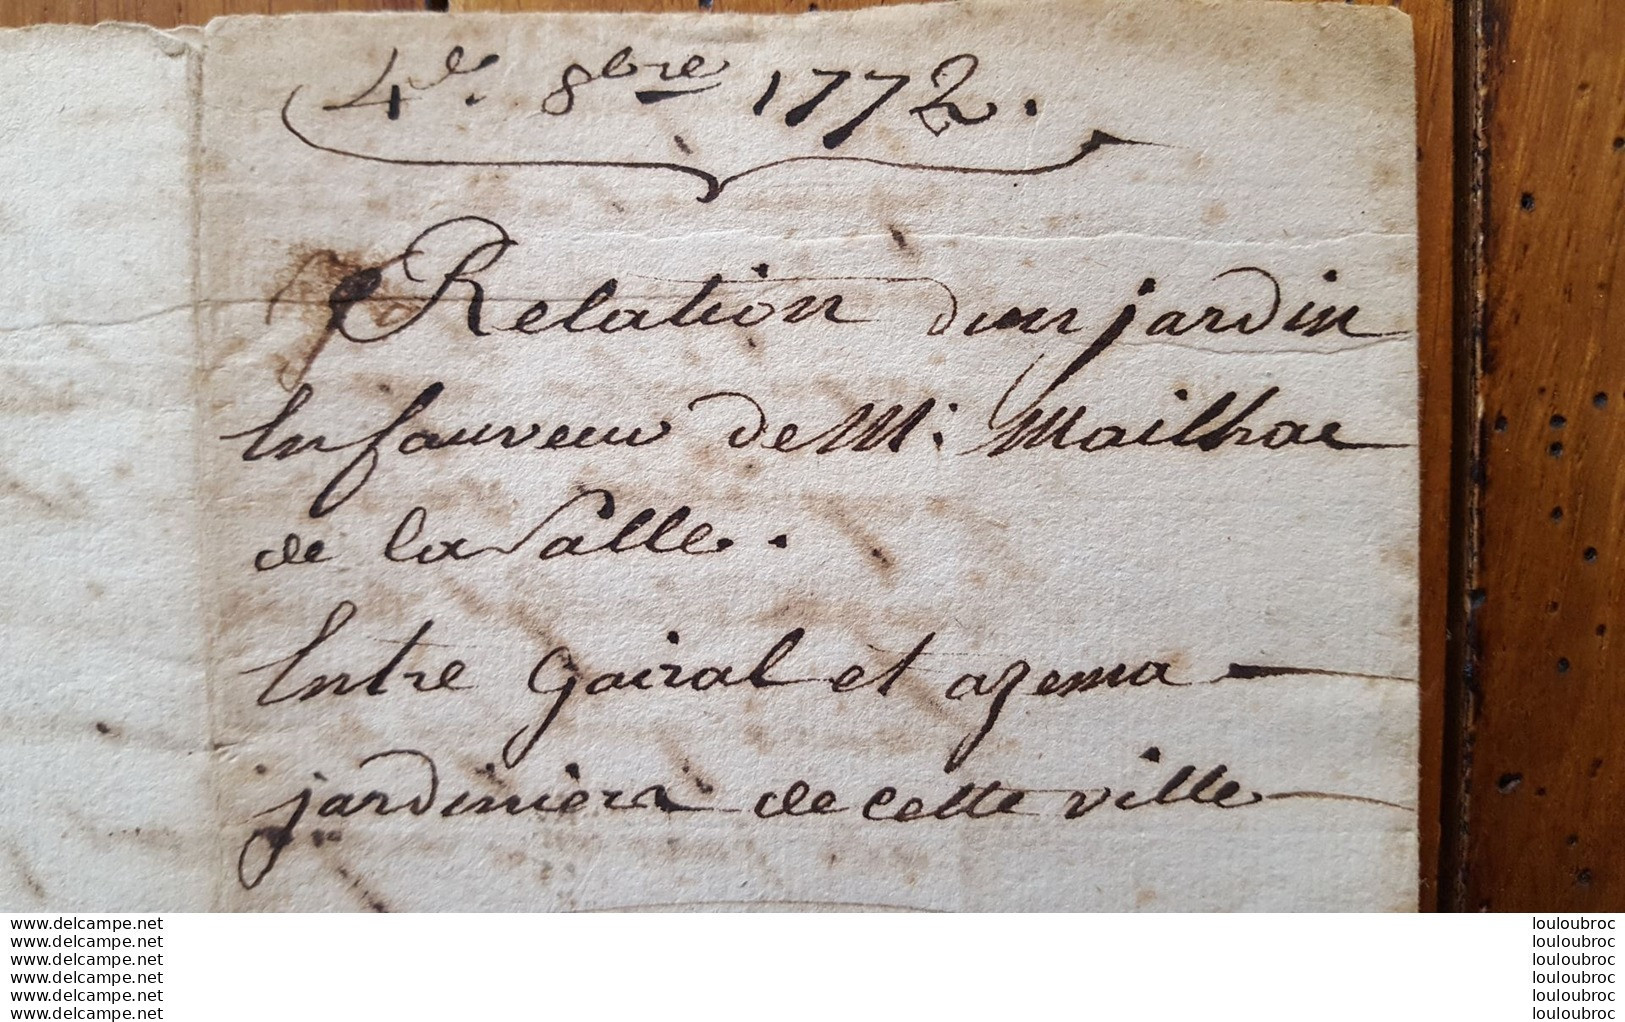 4e. 8bre 1772.
Relation dun jardin
En faveur de Mr. Mailhac
de la Salle.
Entre Gairal et azema
jardiniers de cette ville
www.delcampe.net
www.delcampe.net
www.delcampe.net
www.delcampe.net
www.delcampe.net
www.delcampe.net
louloubroc
louloubroc
louloubroc
louloubroc
louloubroc
louloubroc